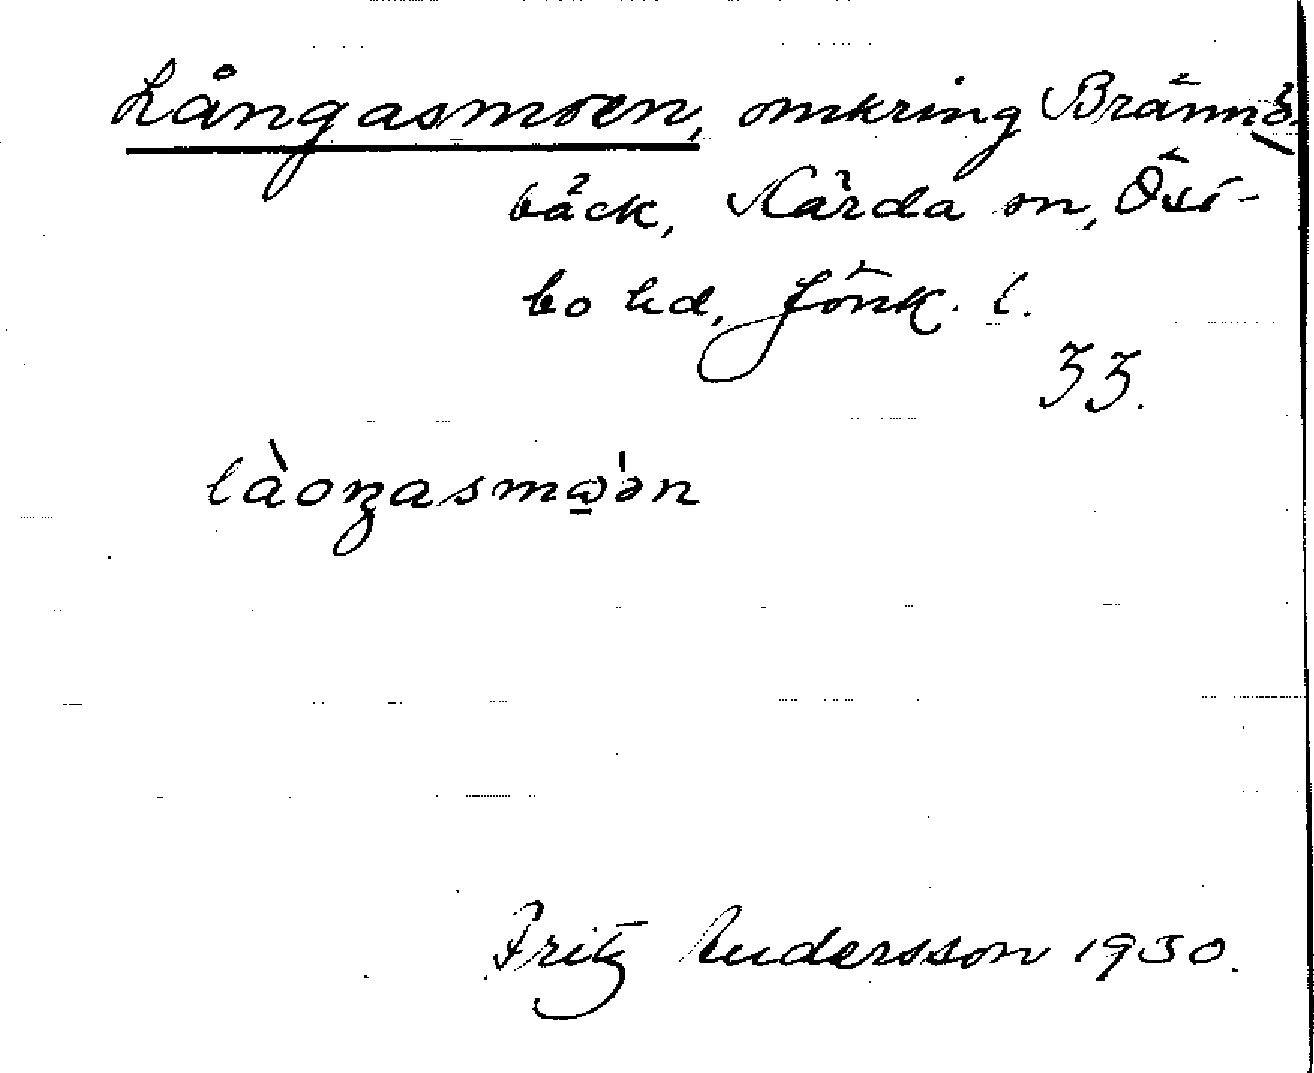 Långasmoen, omkring Brännö-
bäck, Kärda sn, Öst-
bo hd, Jönk. l.
33.
làoŋasmⱺ̠'ən
Fritz Andersson 1930.